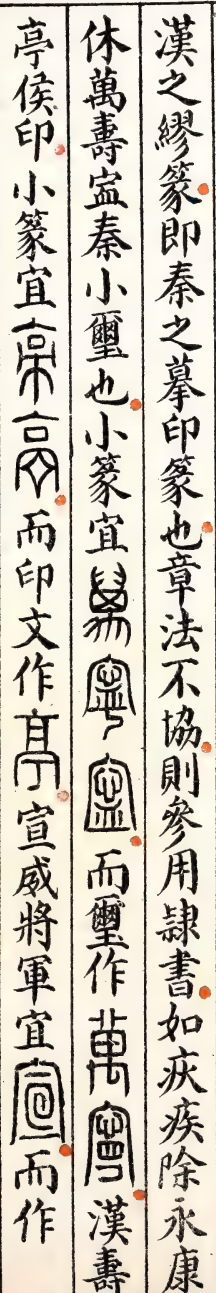 漢之繆篆即秦之摹印篆也章法不協則參用隷書如疢疾除永康
休萬壽寍秦小璽也小篆宜萬寧寍而璽作萬寧漢壽
亭侯印小篆宜而印文作亭宣威將軍宜宣而作